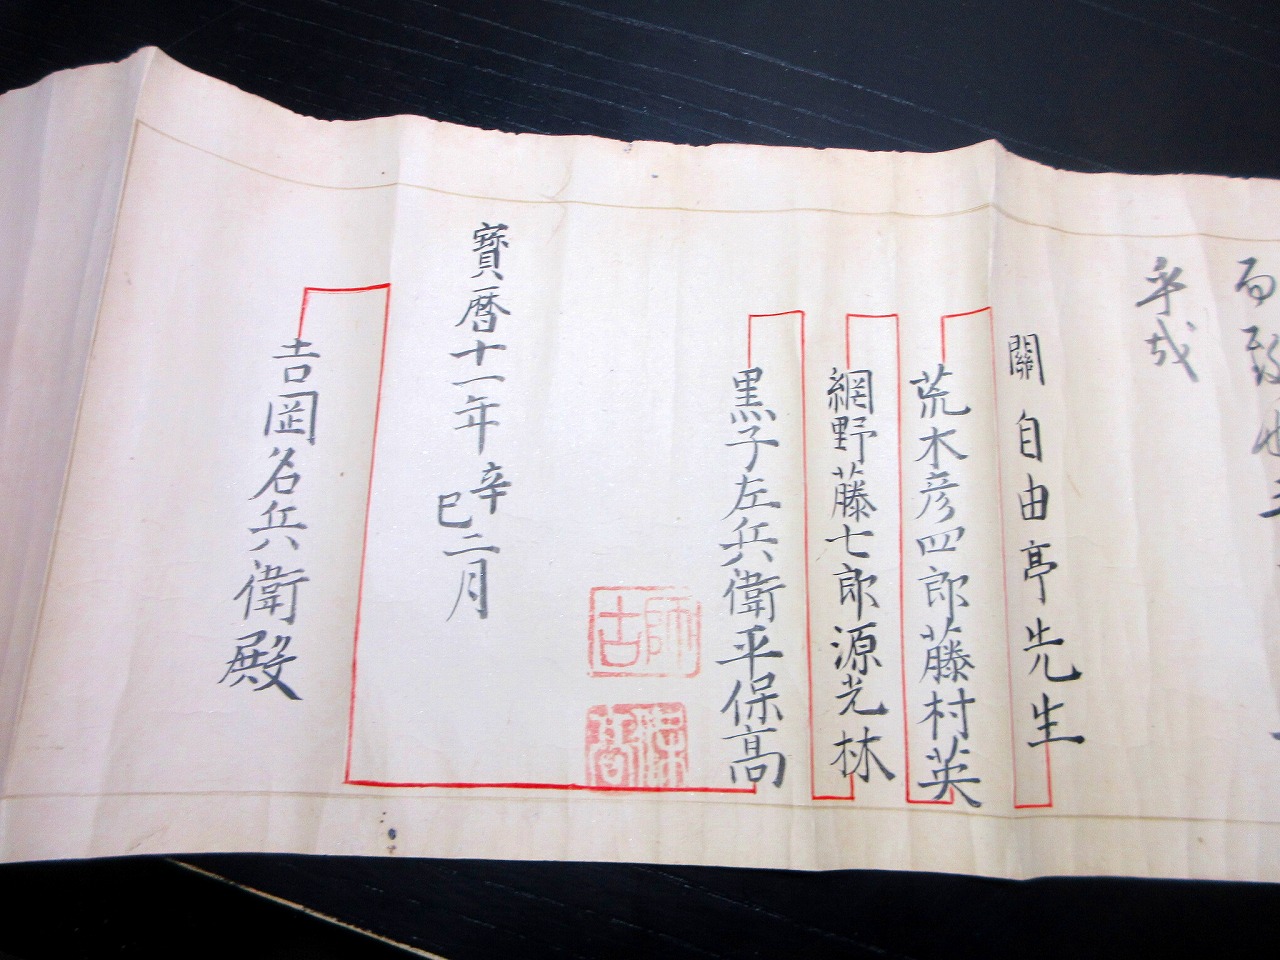 平成
關自由亭先生
荒木彦四郎藤村英
網野藤七郎源光林
黒子左兵衛平保高
寶暦十一年辛巳二月
吉岡名兵衛殿